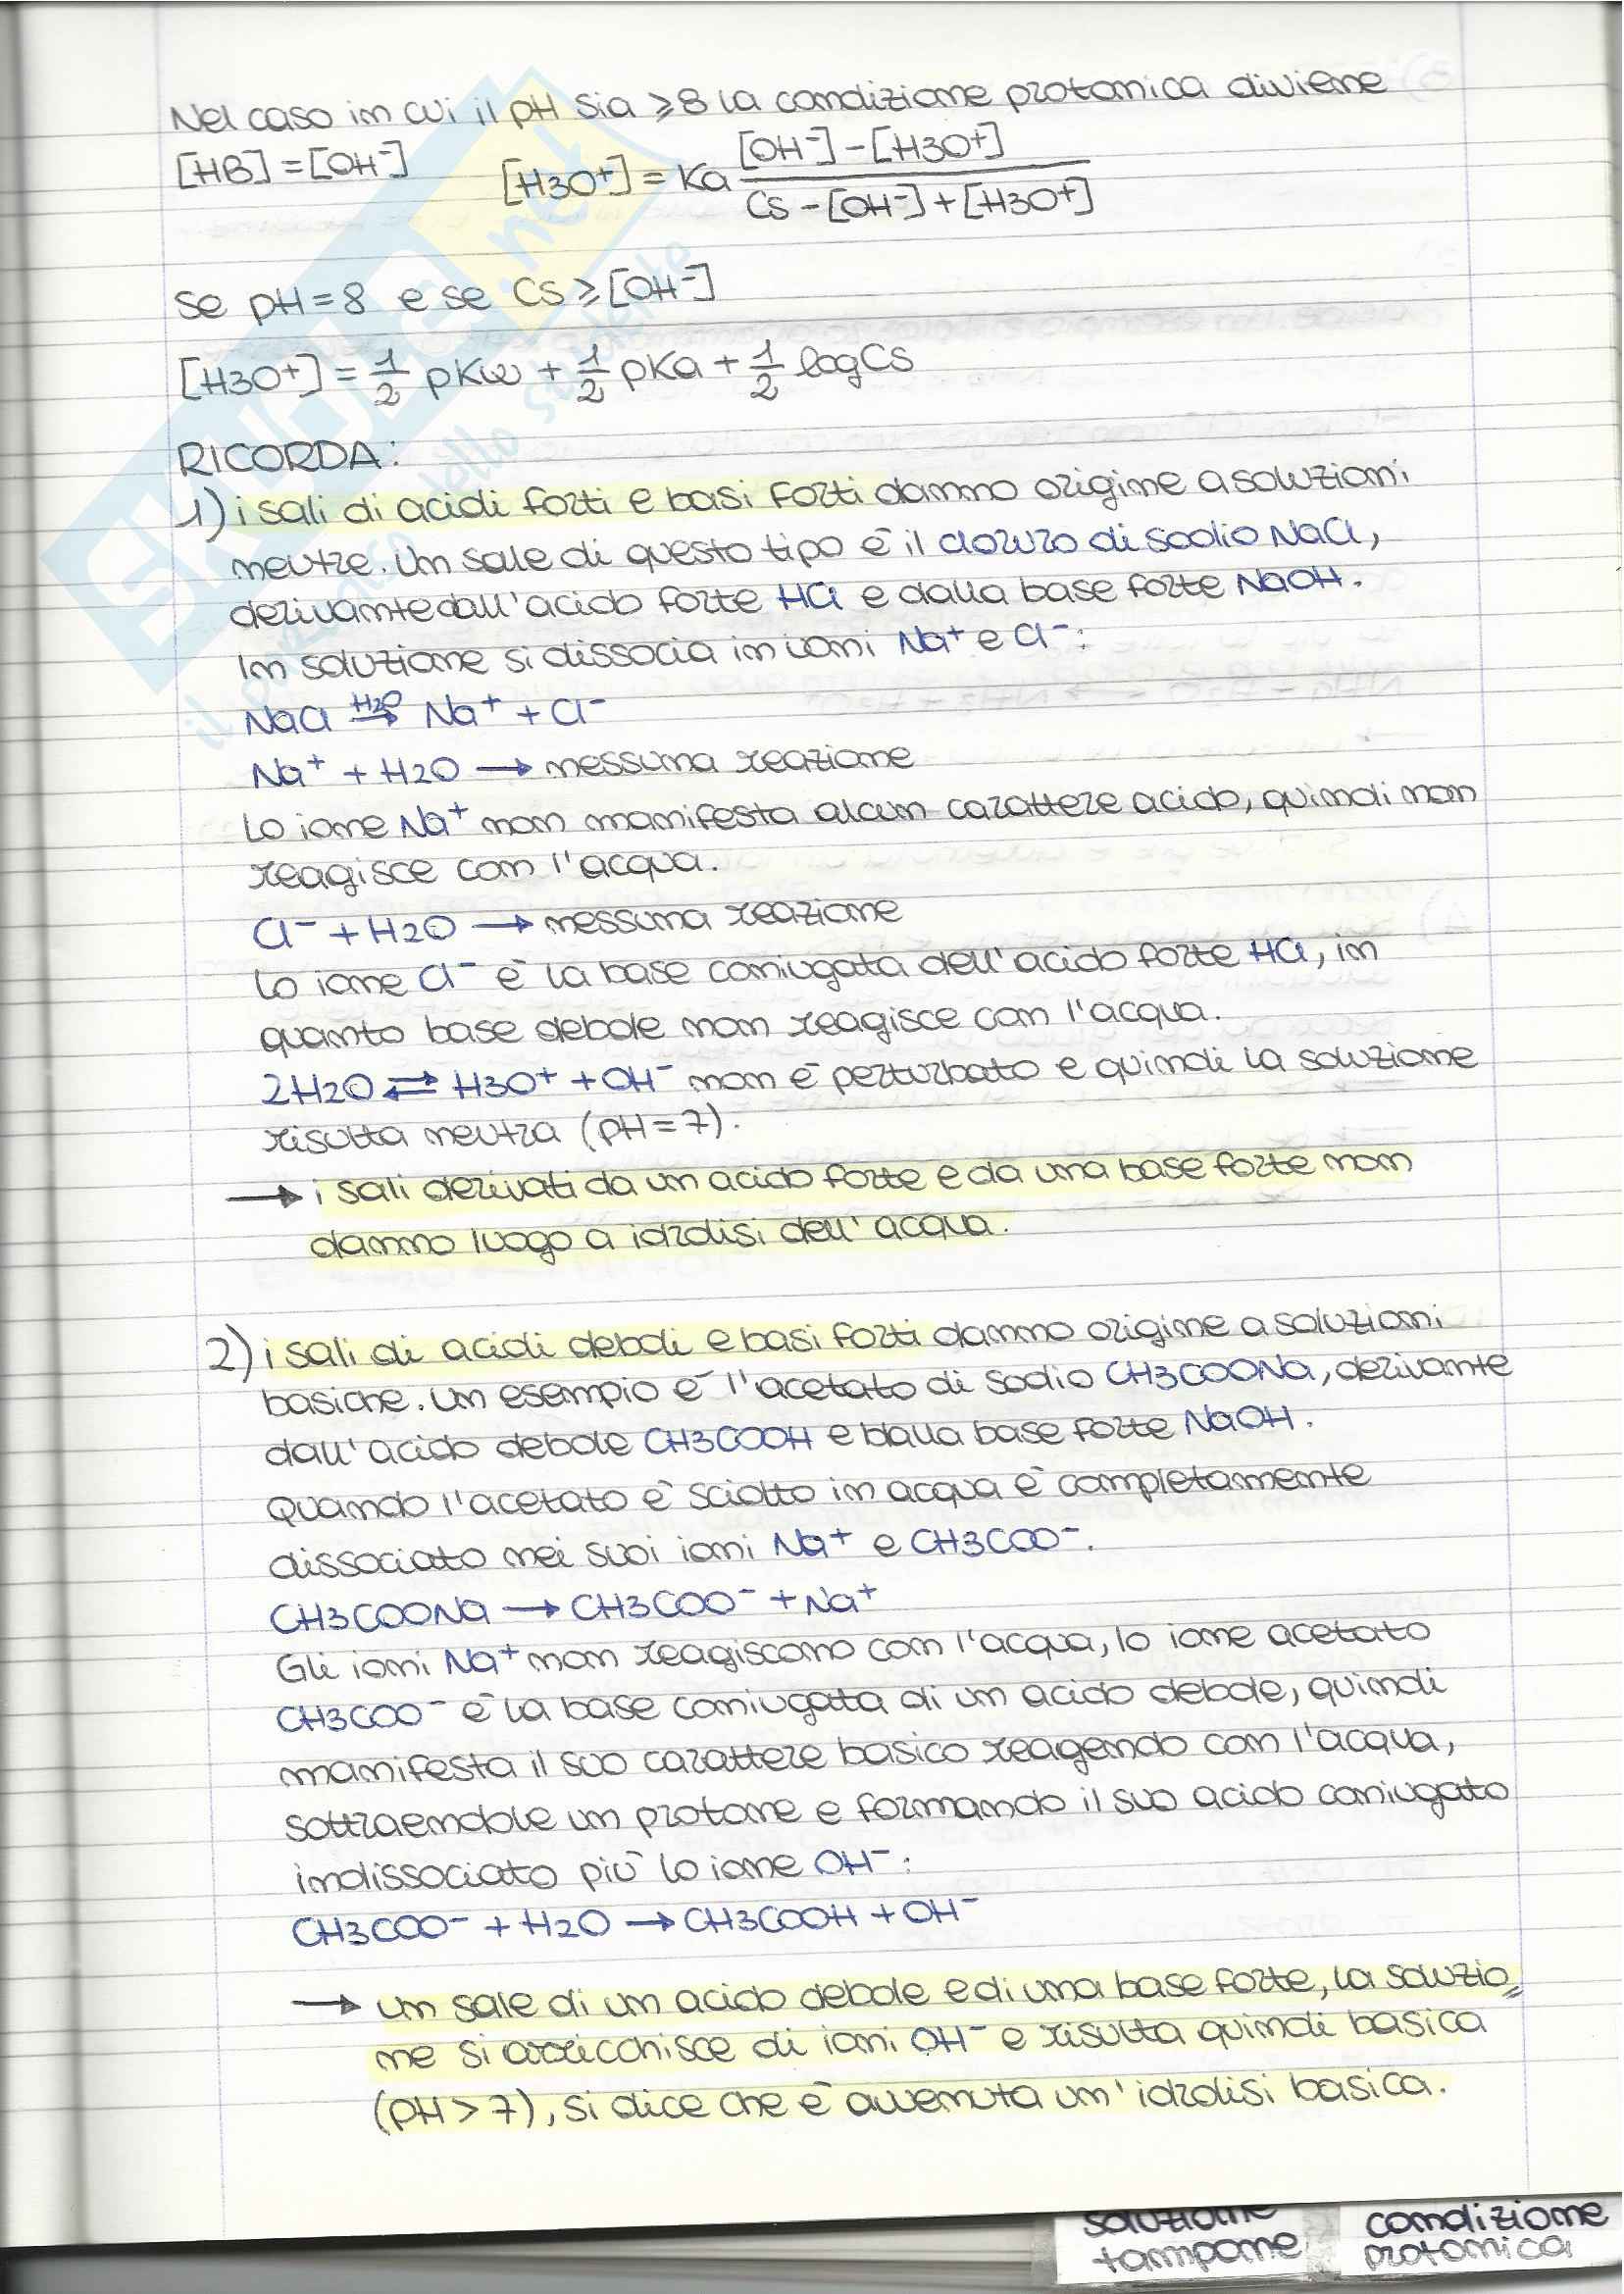 Nel caso in cui il pH sia ⩾8 la condizione protonica diviene
[HB]=[OH⁻] [H3O⁺] = Ka [OH⁻]-[H3O⁺] / Cs-[OH⁻]+[H3O⁺]
se pH=8 e se Cs⩾[OH⁻]
[H3O⁺] = 1/2 pKw + 1/2 pKa + 1/2 log Cs
RICORDA:
1) i sali di acidi forti e basi forti danno origine a soluzioni
neutre. Un sale di questo tipo è il cloruro di sodio NaCl,
derivante dall'acido forte HCl e dalla base forte NaOH.
In soluzione si dissocia in ioni Na⁺ e Cl⁻:
NaCl H2O⇉ Na⁺ + Cl⁻
Na⁺ + H2O → nessuna reazione
Lo ione Na⁺ non manifesta alcun carattere acido, quindi non
reagisce con l'acqua.
Cl⁻ + H2O → nessuna reazione
Lo ione Cl⁻ è la base coniugata dell'acido forte HCl, in
quanto base debole non reagisce con l'acqua.
2H2O ⇄ H3O⁺ + OH⁻ non è perturbato e quindi la soluzione
risulta neutra (pH=7).
→ i sali derivati da un acido forte e da una base forte non
danno luogo a idrolisi dell'acqua.
2) i sali di acidi deboli e basi forti danno origine a soluzioni
basiche. Un esempio è l'acetato di sodio CH3COONa, derivante
dall'acido debole CH3COOH e blalla base forte NaOH.
Quando l'acetato è sciolto in acqua è completamente
dissociato nei suoi ioni Na⁺ e CH3COO⁻.
CH3COONa → CH3COO⁻ + Na⁺
Gli ioni Na⁺ non reagiscono con l'acqua, lo ione acetato
CH3COO⁻ è la base coniugata di un acido debole, quindi
manifesta il suo carattere basico reagendo con l'acqua,
sottraendole un protone e formando il suo acido coniugato
indissociato più lo ione OH⁻:
CH3COO⁻ + H2O → CH3COOH + OH⁻
→ un sale di un acido debole e di una base forte, la soluzio=
ne si arricchisce di ioni OH⁻ e risulta quindi basica
(pH > 7), si dice che è avvenuta un'idrolisi basica.
soluzione
tampone
condizione
protonica